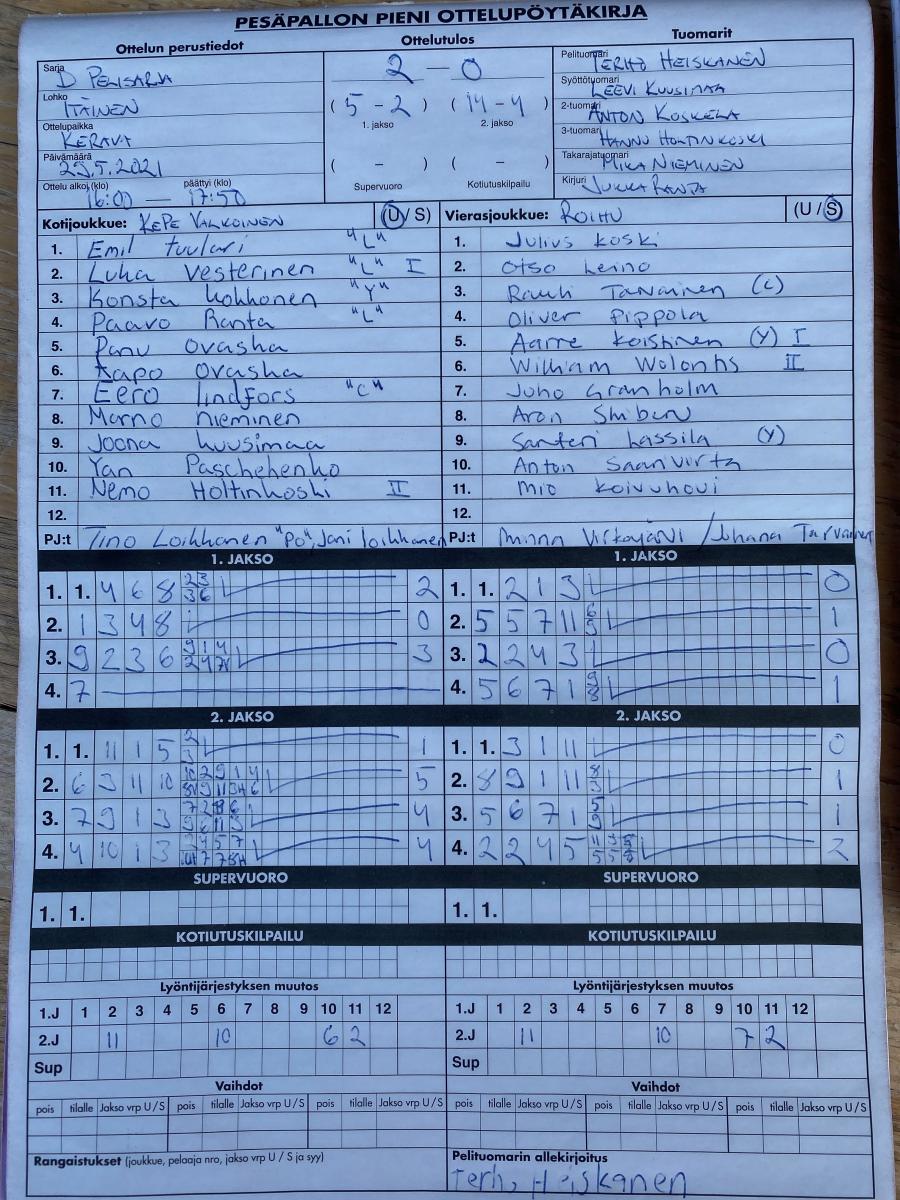 PESÄPALLON PIENI OTTELUPÖYTÄKIRJA
Ottelun perustiedot
Ottelutulos
Tuomarit
Sarja
D PELISARJA
Lohko
ITÄINEN
Ottelupaikka
KERAVA
Päivämäärä
29.5.2021
Ottelu alkoi (klo) päättyi (klo)
16:00 — 17:50
2 — 0
( 5 - 2 ) ( 14 - 4 )
1. jakso 2. jakso
( - ) ( - )
Supervuoro Kotiutuskilpailu
Pelituomari TERHO HEISKANEN
Syöttötuomari LEEVI KUUSIMAA
2-tuomari ANTON KOSKELA
3-tuomari HANNU HOLTINKOSKI
Takarajatuomari MIKA NIEMINEN
Kirjuri JUKKA RANTA
Kotijoukkue: KEPE VALKOINEN (U/S)
1. Emil Tuulari "L"
2. Luka Vesterinen "L" I
3. Konsta Kohhonen "Y"
4. Paavo Ranta "L"
5. Panu Ovaska
6. Aapo Ovaska
7. Eero Lindfors "C"
8. Marno Nieminen
9. Joona Kuusimaa
10. Yan Paschehenko
11. Nemo Holtinkoski II
12.
PJ:t Tino Loikkanen "PO", Jani Loikkanen
Vierasjoukkue: ROIHU (U/S)
1. Julius Koski
2. Otso Leino
3. Rauli Tarvainen (C)
4. Oliver Pippola
5. Aarre Koistinen (Y) I
6. William II
7. Juho Granholm
8. Aron
9. Santeri Lassila (Y)
10. Anton Saanvirta
11. Mio Koivuhovi
12.
PJ:t Minna / Juhana Tarvainen
1. JAKSO
1. 1. 4 6 8 2
2. 1 3 4 8 0
3. 9 2 3 6 3
4. 7
1. JAKSO
1. 1. 2 1 3 0
2. 5 5 7 11 1
3. 2 2 4 3 0
4. 5 6 7 1 1
2. JAKSO
1. 1. 11 1 5 1
2. 6 3 11 10 5
3. 7 9 1 3 4
4. 4 10 1 3 4
2. JAKSO
1. 1. 3 1 11 0
2. 8 9 1 11 1
3. 5 6 7 1 1
4. 2 2 4 5 2
SUPERVUORO
1. 1.
SUPERVUORO
1. 1.
KOTIUTUSKILPAILU
KOTIUTUSKILPAILU
Lyöntijärjestyksen muutos
1.J 1 2 3 4 5 6 7 8 9 10 11 12
2.J 11 10 6 2
Sup
Lyöntijärjestyksen muutos
1.J 1 2 3 4 5 6 7 8 9 10 11 12
2.J 11 10 7 2
Sup
Vaihdot
pois tilalle Jakso vrp U/S pois tilalle Jakso vrp U/S pois tilalle Jakso vrp U/S
Vaihdot
pois tilalle Jakso vrp U/S pois tilalle Jakso vrp U/S pois tilalle Jakso vrp U/S
Rangaistukset (joukkue, pelaaja nro, jakso vrp U / S ja syy)
Pelituomarin allekirjoitus
Terho Heiskanen